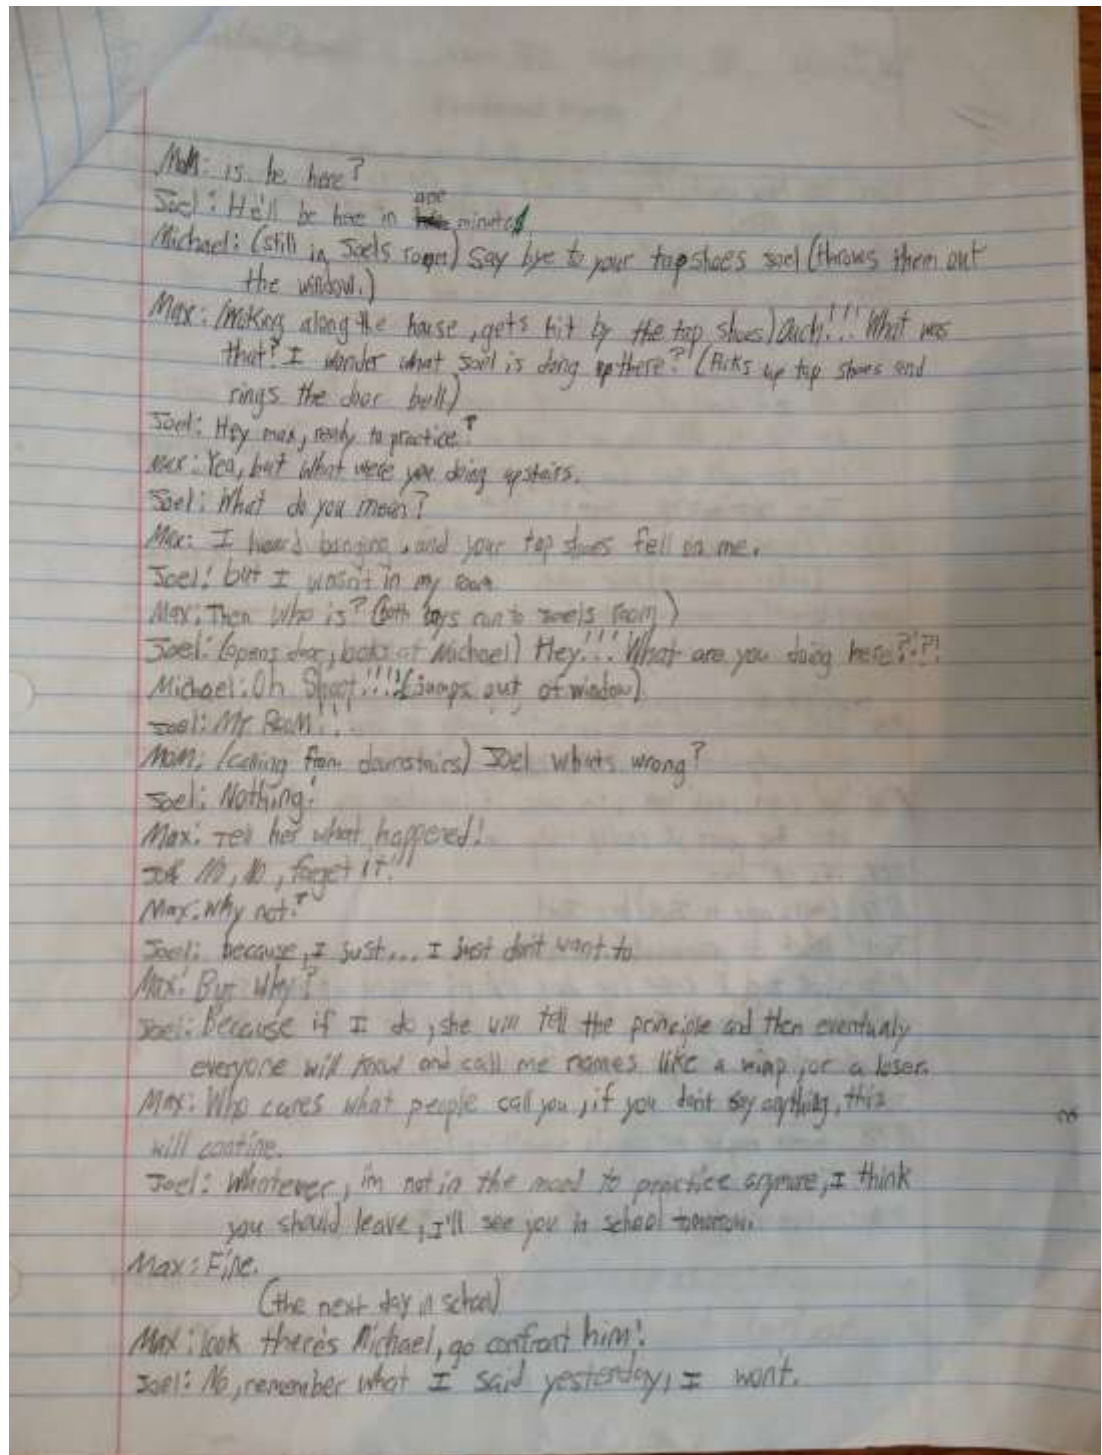 Mom: is he here?
Joel: He'll be here in one minute
Michael: (still in Joels room) Say bye to your tapshoes Joel (throws them out
the window.)
Max: (Walking along the house, gets hit by the tap shoes) Ouch!!! What was
that? I wonder what Joel is doing up there? (Picks up tap shoes and
rings the door bell)
Joel: Hey max, ready to practice?
Max: Yea, but what were you doing upstairs.
Joel: What do you mean?
Max: I heard banging, and your tap shoes fell on me.
Joel: but I wasn't in my room
Max: Then Who is? (both boys run to Joels room)
Joel: (opens door, looks at Michael) Hey!!! What are you doing here?!?!
Michael: Oh Shoot!!!! (jumps out of window)
Joel: My Room!!
Mom: (calling from downstairs) Joel whats wrong?
Joel: Nothing!
Max: Tell her what happened!
Joel No, No, forget it!!!
Max: Why not?
Joel: because, I just... I just don't want to
Max: But Why?
Joel: Because if I do, she will tell the principle and then eventualy
everyone will know and call me names like a wimp, or a loser.
Max: Who cares what people call you, if you don't say anything, this
will contine.
Joel: Whatever, im not in the mood to practice anymore, I think
you should leave, I'll see you in school tomorrow.
Max: Fine.
(the next day in school)
Max: look there's Michael, go confront him!
Joel: No, remember what I said yesterday, I won't.